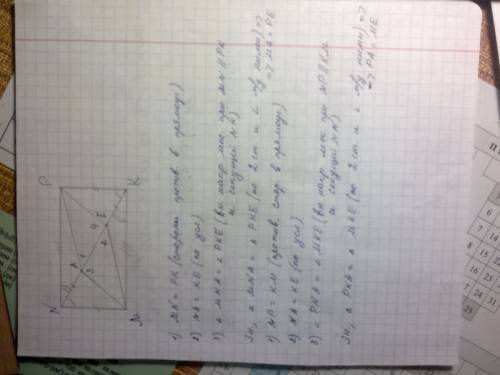 N
P
M
K
A
E
1
2
3
4
1) MN = PK (стороны против. в прямоуг.)
2) NA = KE (по усл)
3) ∠ MNA = ∠ PKE (вн. накр. леж. при MN || PK
и секущей NK)
Зн, △ MNA = △ PKE (по 2 ст. и ∠ м/у ними) =>
=> MA = PE
1) NP = KM (против. стор. в прямоуг)
2) NA = KE (по усл)
3) ∠ PNA = ∠ MKE (вн. накр. леж. при NP || KM
и секущей NK)
Зн, △ PNA = △ MKE (по 2 ст. и ∠ м/у ними) =>
=> PA = ME